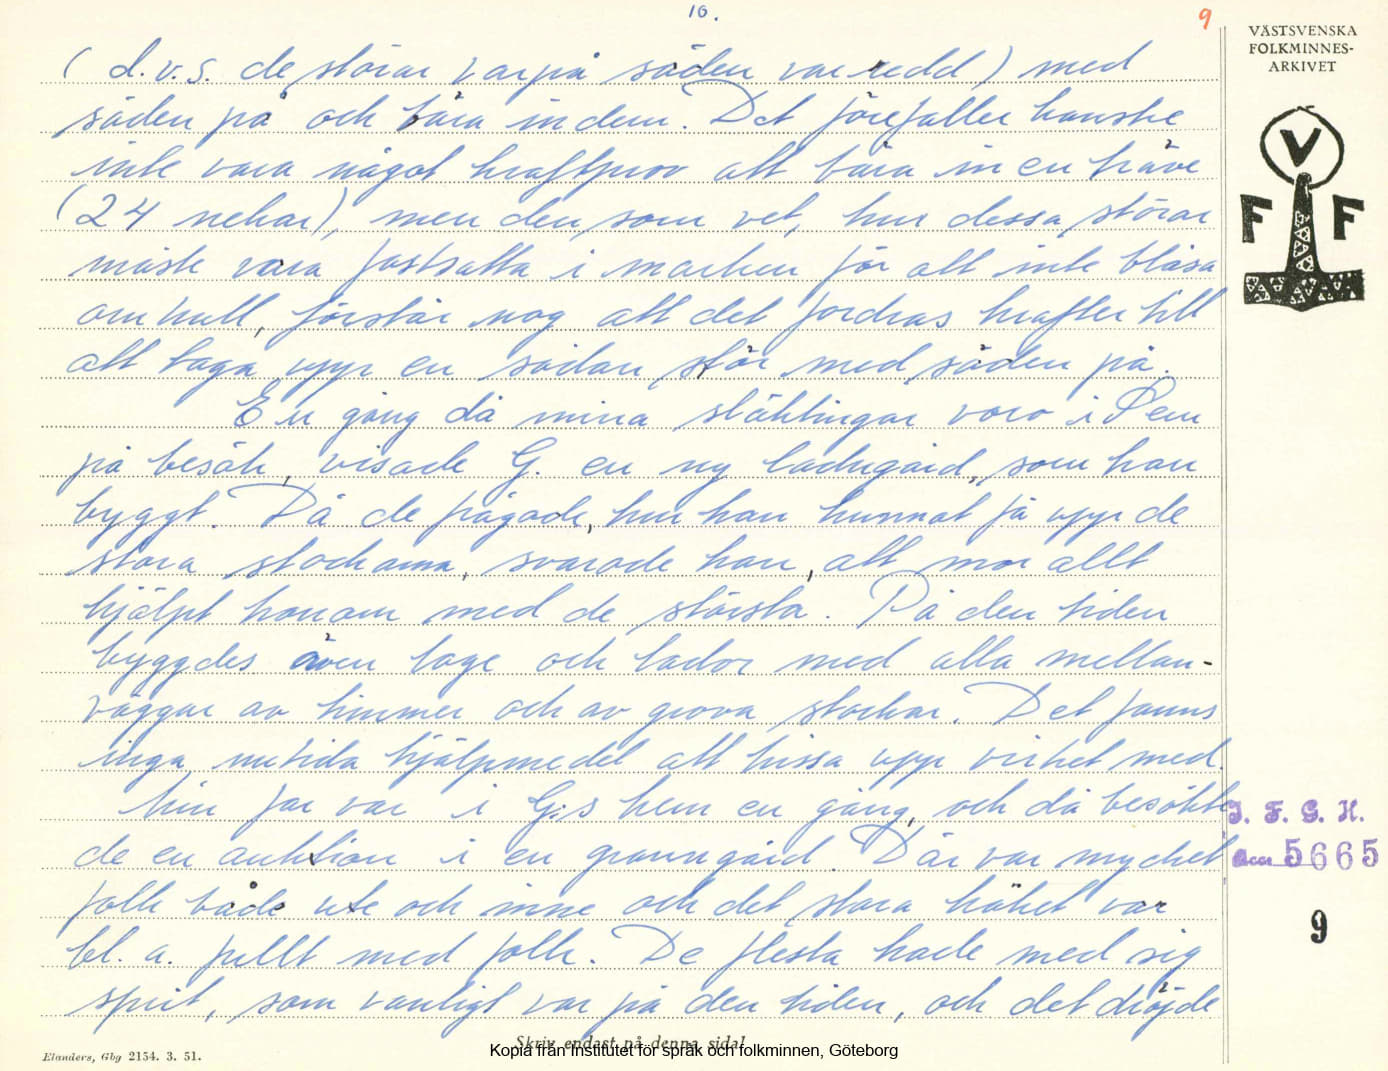 10.
9
VÄSTSVENSKA
FOLKMINNES-
ARKIVET
V
F F
( d.v.s. de störar varpå säden var redd) med
säden på och bära in dem. Det förefaller kanske
inte vara något kraftprov att bära in en träve
(24 nekar), men den som vet, hur dessa störar
måste vara fastsatta i marken för att inte blåsa
omkull, förstår nog att det fordras krafter till
att taga upp en sådan stör med säden på.
En gång då mina släktingar voro i Sem
på besök, visade G. en ny ladugård, som han
byggt. Då de frågade, hur han hunnat få upp de
stora stockarna, svarade han, att mor allt
hjälpt honom med de största. På den tiden
byggdes även loge och lador med alla mellan-
väggar av timmer och av grova stockar. Det fanns
inga nutida hjälpmedel att hissa upp virket med.
Min far var i G:s hem en gång, och då besökte
de en auktion i en granngård. Där var mycket
folk både ute och inne och det stora köket var
bl. a. fullt med folk. De flesta hade med sig
sprit, som vanligt var på den tiden, och det dröjde
I. F. G. H.
Acc 5665
9
Skriv endast på denna sida!
Elanders, Gbg 2154. 3. 51.
Kopia från Institutet för språk och folkminnen, Göteborg